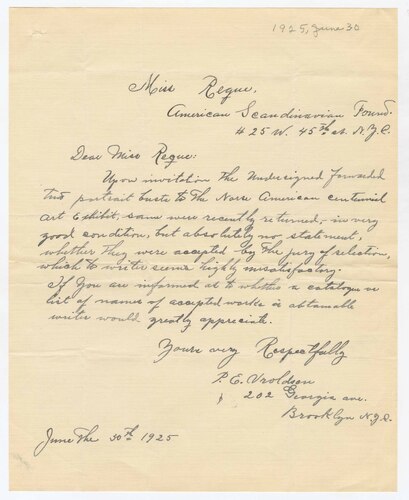 1925, June 30
Miss Reque,
American Scandinavian Found.
# 25 W. 45th st. N.Y.C.
Dear Miss Reque:
Upon invitation the Undersigned forwarded
two portrait busts to The Norse American centennial
art Exhibit, same were recently returned,- in very
good condition, but absolutely no statement,
whether they were accepted by The jury of selection,
which to writer seems highly unsatisfactory.
If You are informed as to whether a catalogue or
list of names of accepted works is obtainable
writer would greatly appreciate.
Yours very Respectfully
P. E. Vroldsen
202 Georgia ave.
Brooklyn N.Y.C.
June The 30th 1925